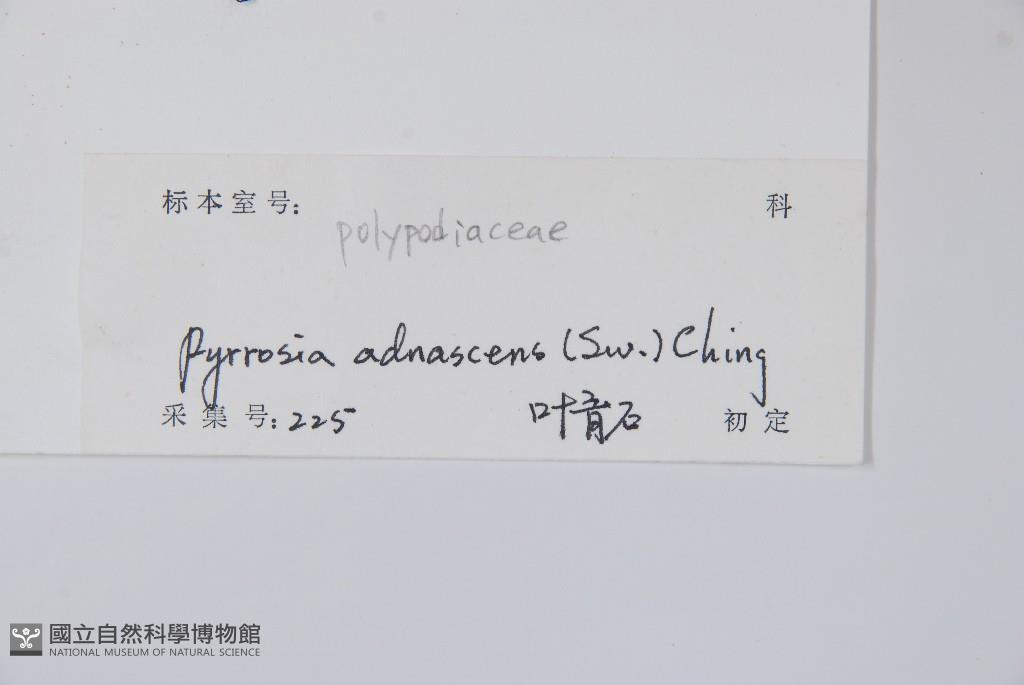 标本室号： 科
polypodiaceae
Pyrrosia adnascens (Sw.) Ching
采集号：225 叶育石 初定
國立自然科學博物館
NATIONAL MUSEUM OF NATURAL SCIENCE